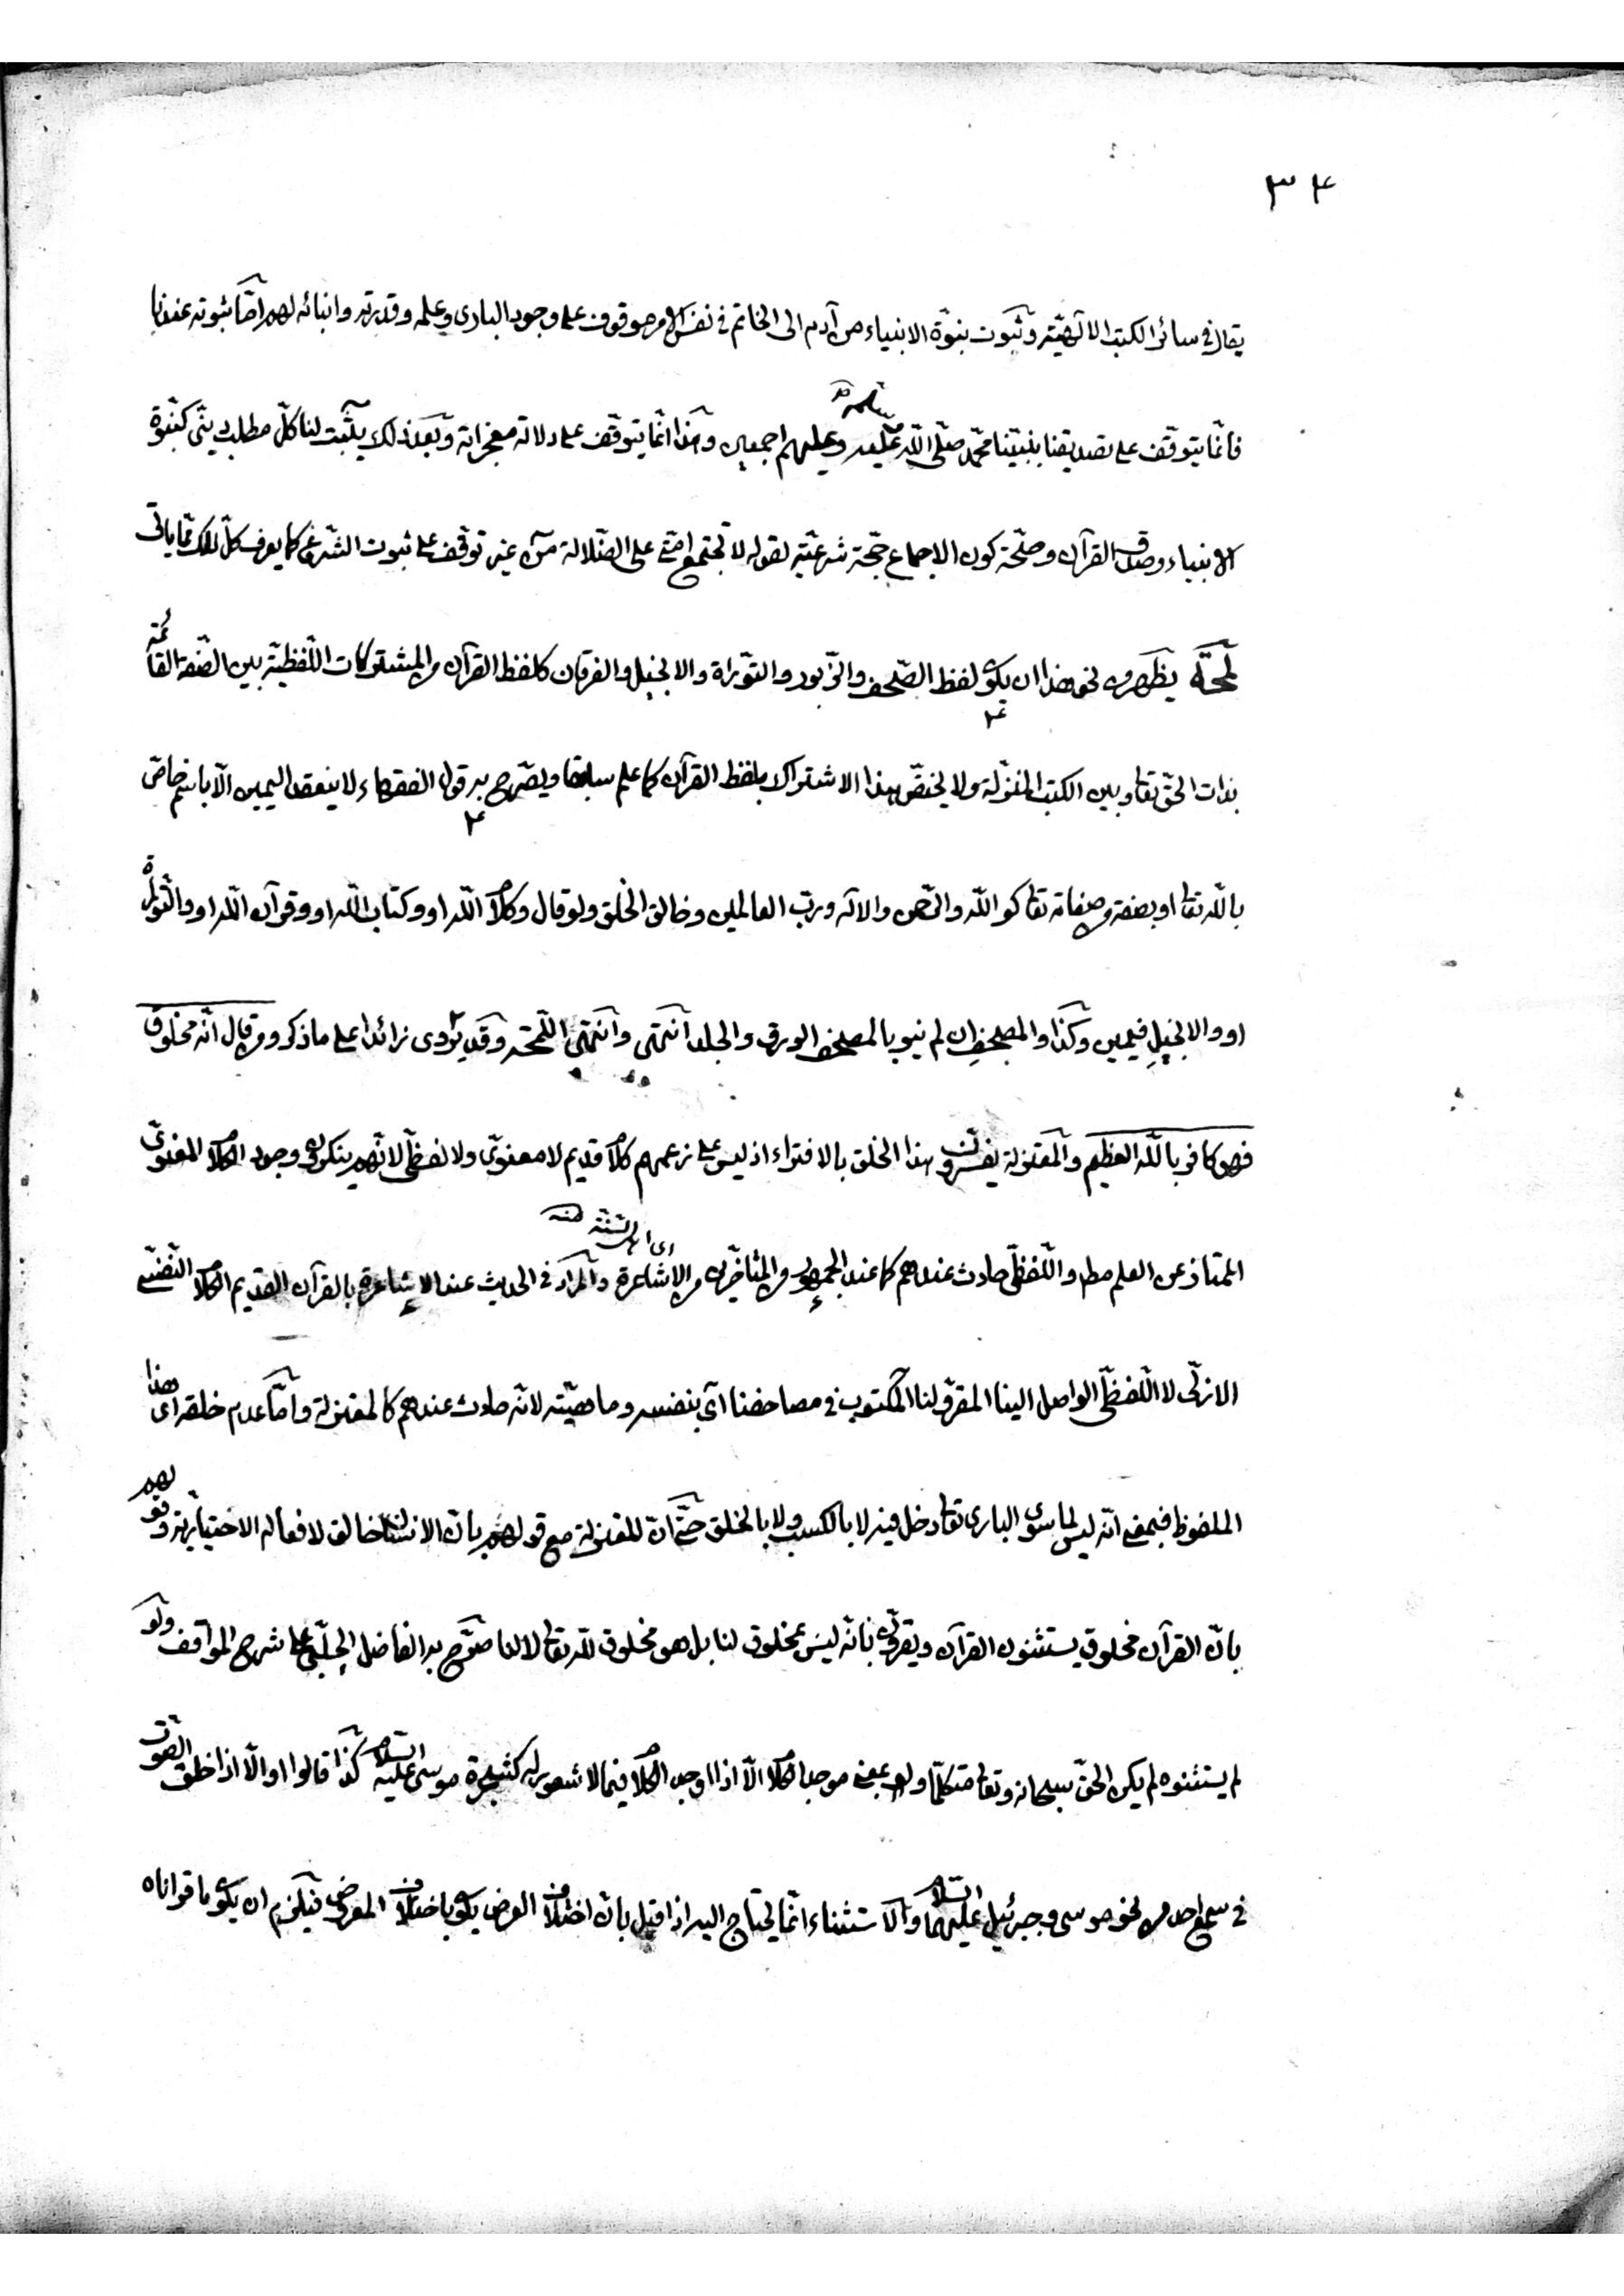 ٣٤
يقال في سائر الكتب الالٓهيّة وثبوت نبوّة الانبياء من آدم الى الخاتم في نفس الامر موقوف على وجود البارى وعلمه وقدرته وانبائه لهم امّا ثبوته عندنا
فانّما يتوقّف على تصديقنا بنبيّنا محمّد صلّى اللّه عليه وعليهم اجمعين وهذا انّما يتوقّف على دلالة معجزاته وبعد ذلك يثبت لنا كلّ مطلب دينّى كنبوّة
الانبياء وصدق القرآن وصحّة كون الاجماع حجّة شرعيّة لقوله لا تجتمع امّتى على الضّلالة من غير توقّف على ثبوت الشرع كما يعرف كلّ ذلك ممّا ياتى
لمحة يظهر من نحو هذا ان يكون لفظ الصّحف والزّبور والتوّراة والانجيل والفرقان كلفظ القرآن من المشتركات اللّفظيّة بين الصّفة القائمة
بذات الحقّ تعا وبين الكتب المنزلة ولا يختصّ هذا الاشتراك بلفظ القرآن كما علم سابقا ويصّرح به قول الفقهاء لا ينعقد اليمين الّا باسم خاصّ
باللّه تعا او بصفة من صفاته تعا كو اللّه والرّحمن والاله وربّ العالمين وخالق الخلق ولو قال وكلام اللّه او وكتاب اللّه او وقرآن اللّه او والتّوراة
او والانجيل فيمين وكذا والمصحف ان لم ينو بالمصحف الورق والجلد انتهى وانتهى اللّمحة وقد يروى زائدا على ما ذكر ومن قال انّه مخلوق
فهو كافر باللّه العظيم والمعتزلة يفسّرون هذا الخلق بالافتراء اذ ليس على زعمهم كلام قديم لا معنوىّ ولا لفظّى لانّهم ينكرون وجود الكلام المعنوىّ
الممتاز عن العلم مطم واللّفظّى حادث عندهم كما عند الجمهور من المتاخّرين من الاشاعرة والمراد في الحديث عند الاشاعرة بالقرآن القديم الكلام النّفسّى
اى اهل السّنّة منه
الازلّى لا اللّفظّى الواصل الينا المقروّ لنا المكتوب في مصاحفنا اى بنفسه وماهيّته لانّه حادث عندهم كالمعتزلة وامّا عدم خلقه اى هذا
الملفوظ فبمعنى انّه ليس لما سوى البارى تعا دخل فيه لا بالكسب ولا بالخلق حتّى انّ المعتزلة مع قولهم بانّ الانسان خالق لافعاله الاختياريّة وقولهم
بانّ القرآن مخلوق يستثنون القرآن ويقرّون بانّه ليس بمخلوق لنا بل هو مخلوق للّه تعا لا لنا صرّح به الفاضل الچلبّى على شرح المواقف ولو
لم يستثنوه لم يكن الحقّ سبحانه وتعا متكلّما ولو بمعنى موجد الكلام الّا اذا اوجد الكلام فيما لا شعور له كشجرة موسى عليه السّلام كذا قالوا او الّا اذا خلق الصّوت
في سمع احد من نحو موسى وجبرئيل عليهما السّلام والاستثناء انّما يحتاج اليه اذا قيل بانّ اختلاف العرض يكون باختلاف المعروض فيلزم ان يكون ما قراناه